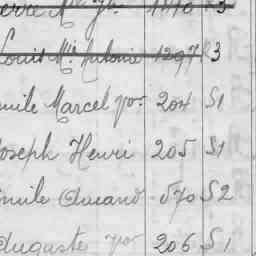 Louis Mie Antonin 1297 3
mile Marcel por 204 S1
Joseph Henri 205 S1
mile Durand 570 S2
Auguste por 206 S1